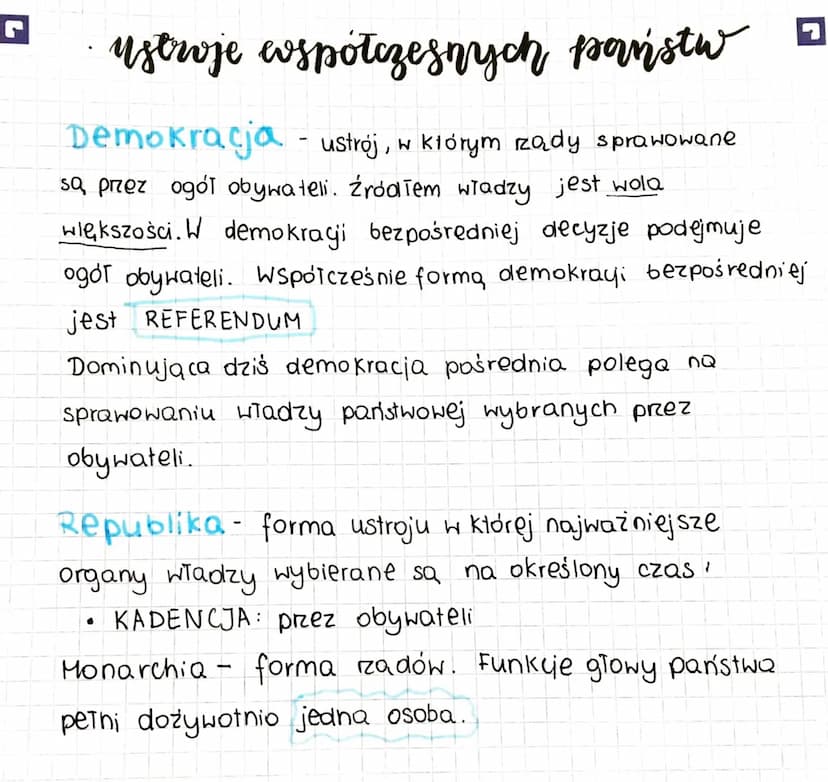 ustroje współczesnych państw
Demokracja - ustrój, w którym rządy sprawowane
są przez ogół obywateli. Źródłem władzy jest wola
większości. W demokracji bezpośredniej decyzje podejmuje
ogół obywateli. Współcześnie formą demokracji bezpośredniej
jest REFERENDUM
Dominująca dziś demokracja pośrednia polega na
sprawowaniu władzy państwowej wybranych przez
obywateli.
Republika - forma ustroju w której najważniejsze
organy władzy wybierane są na określony czas,
• KADENCJA: przez obywateli
Monarchia - forma rządów. Funkcje głowy państwa
pełni dożywotnio jedna osoba.